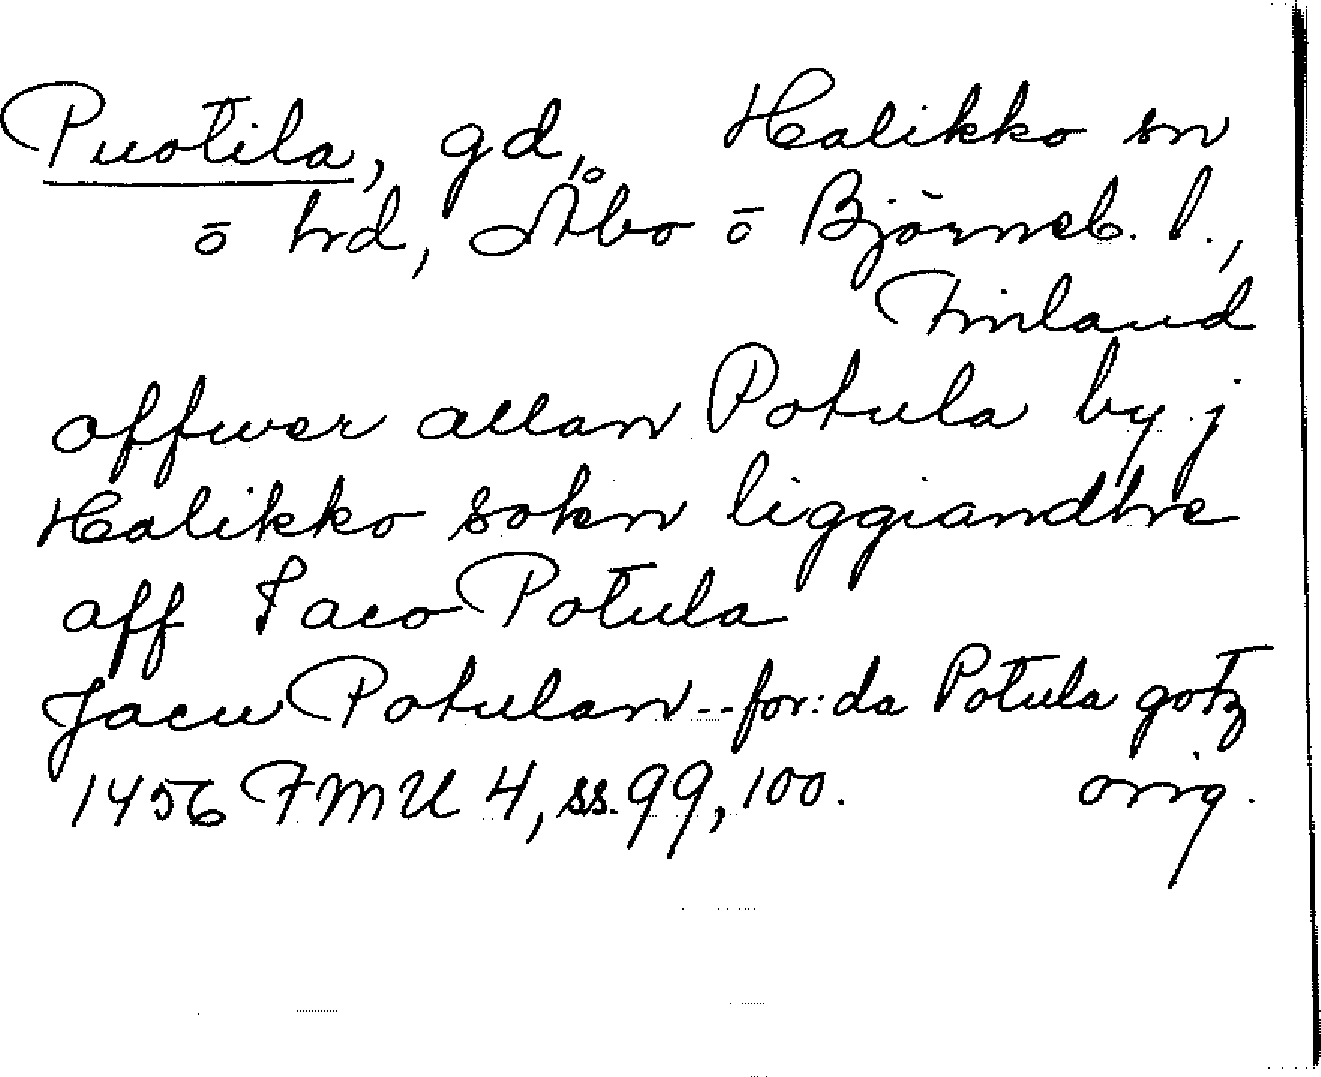 Puotila, gd, Halikko sn
ō hd, Åbo ō Björneb. l.,
Finland
offwer allan Potula by j
Halikko sokn liggiandhe
aff Jaco Potula
Jacu Potulan -- for:da Potula gotz
1456 FMU 4, ss. 99, 100. orig.